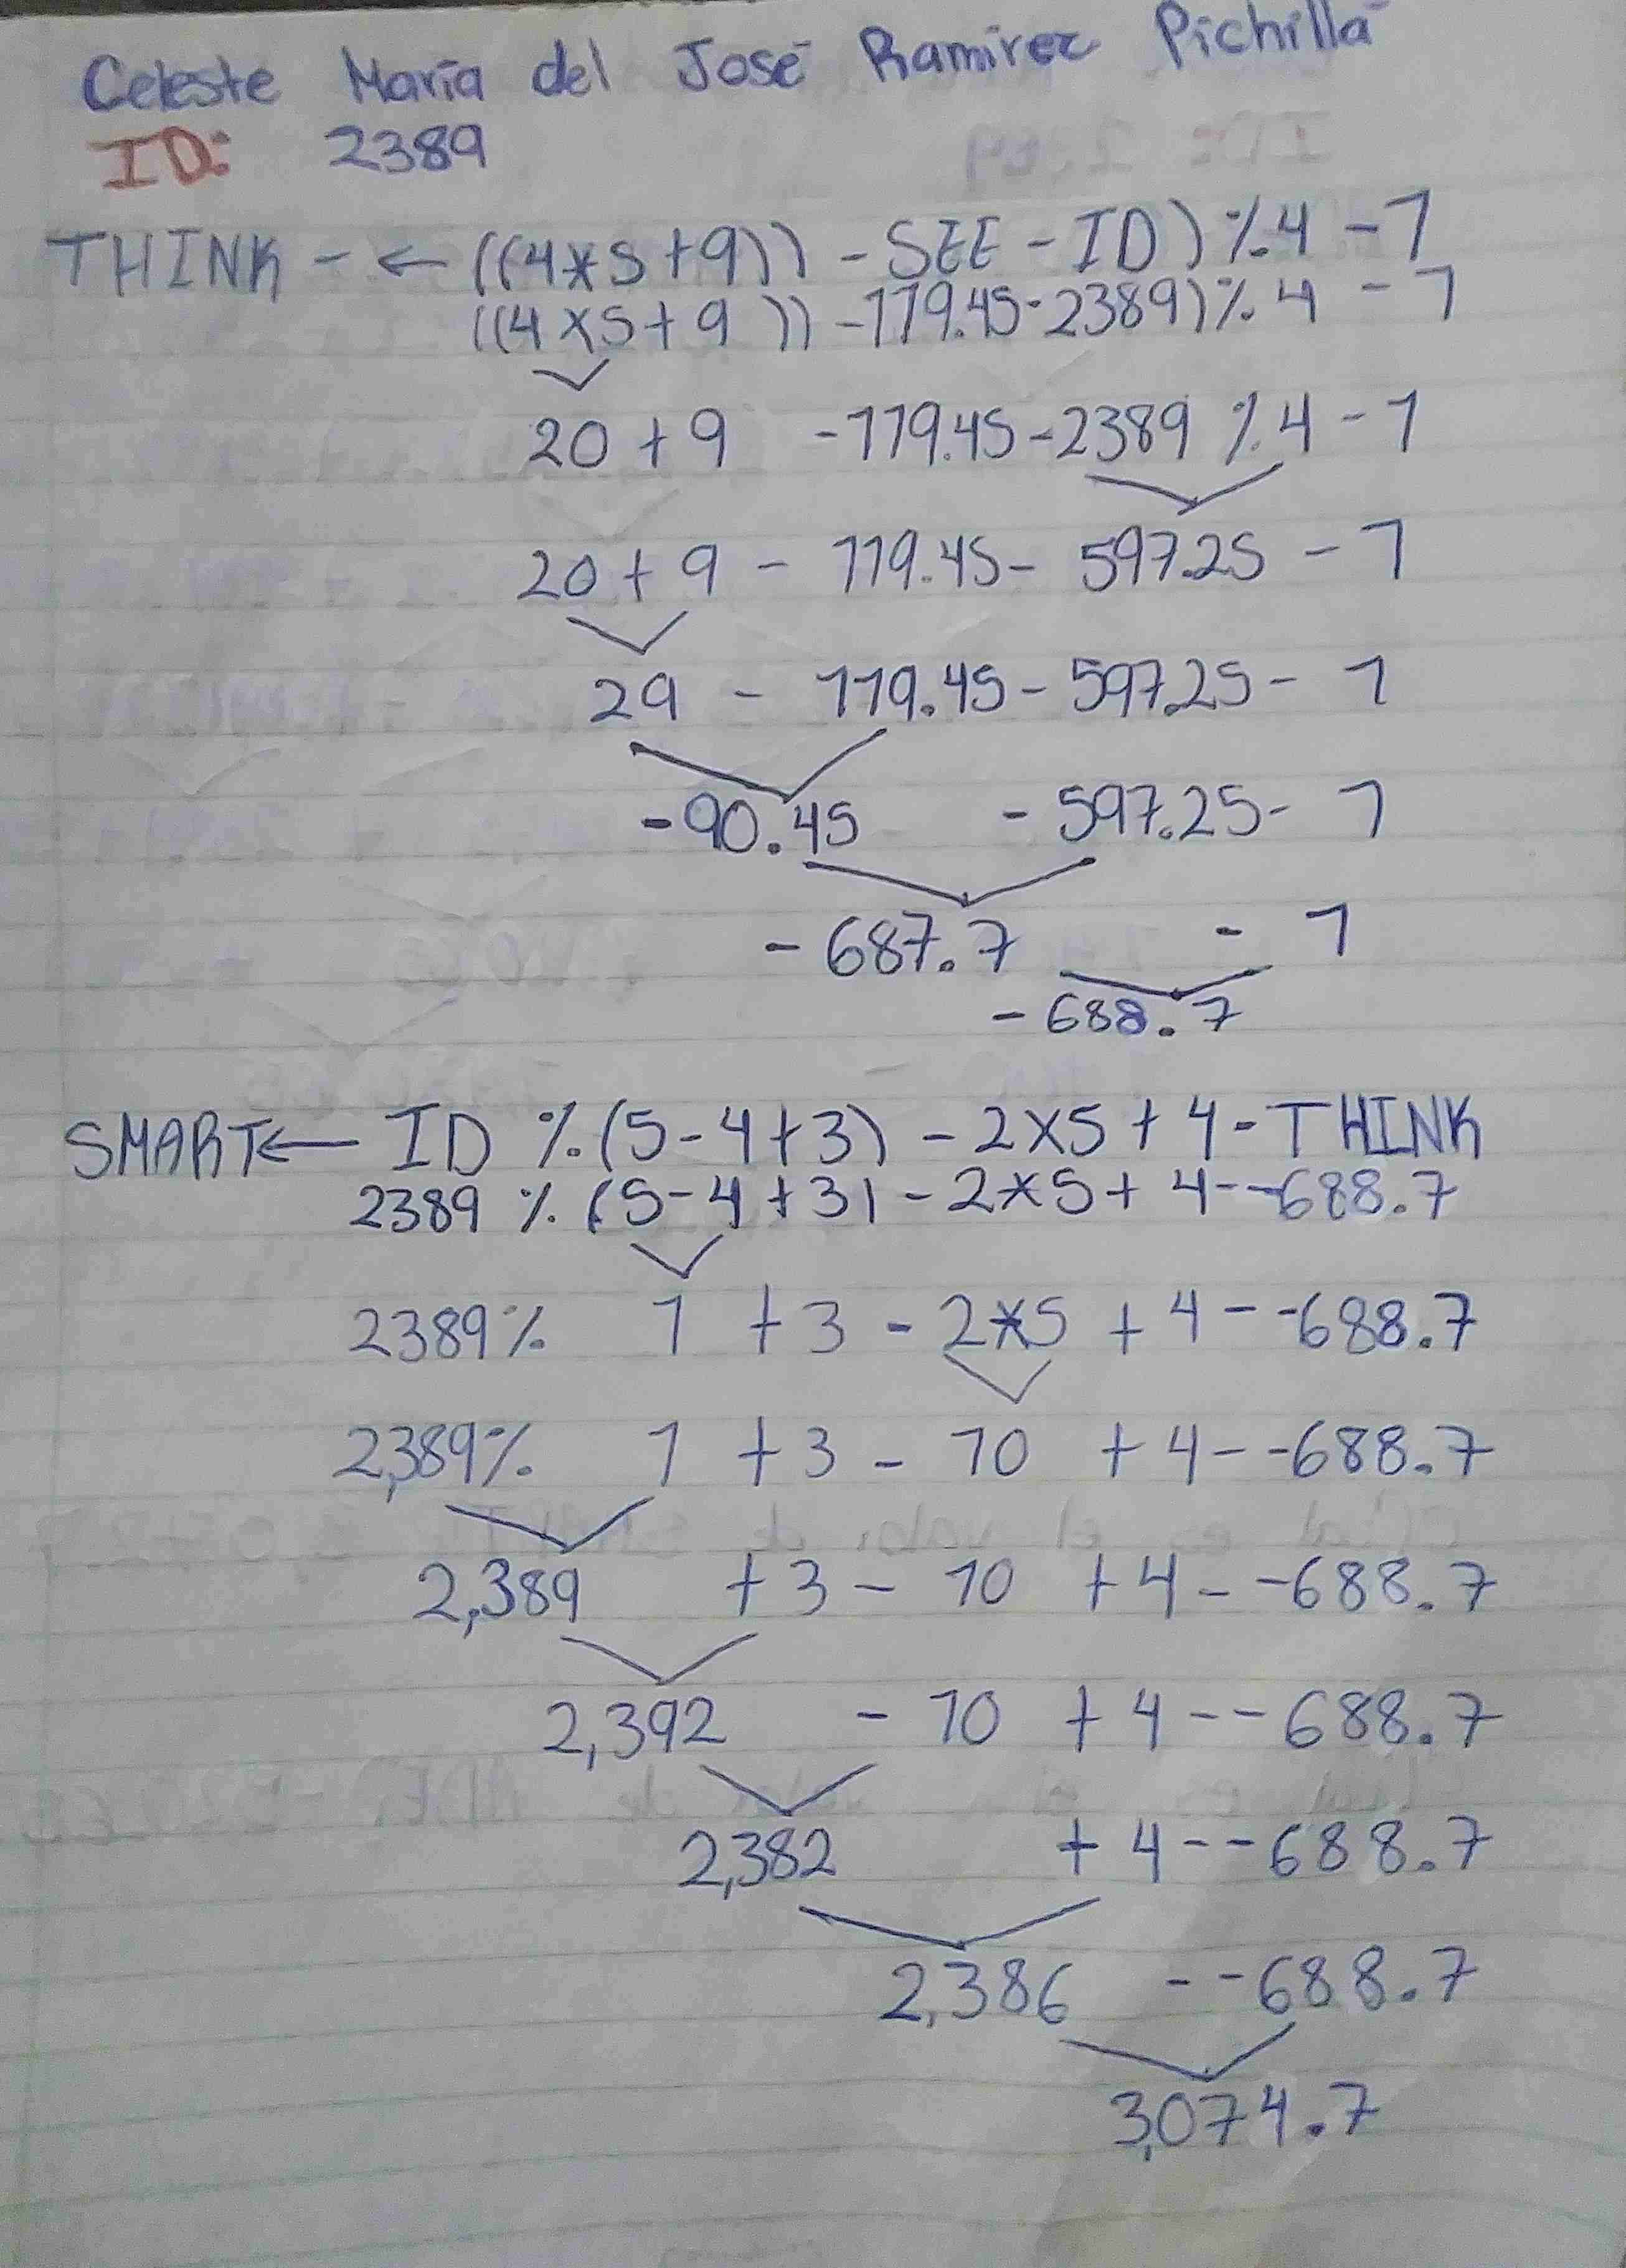 Celeste María del José Ramirez Pichillá
ID: 2389
THINK - ← ((4*5+9)) - SEE - ID) % 4 - 1
((4×5+9)) - 119.45 - 2389) % 4 - 1
20 + 9 - 119.45 - 2389 % 4 - 1
20 + 9 - 119.45 - 597.25 - 1
29 - 119.45 - 597.25 - 1
-90.45 - 597.25 - 1
- 687.7 - 1
- 688.7
SMART ← ID % (5-4+3) - 2×5 + 4 - THINK
2389 % (5-4+3) - 2*5 + 4 - -688.7
2389 % 1 + 3 - 2*5 + 4 - -688.7
2,389 % 1 + 3 - 10 + 4 - -688.7
2,389 + 3 - 10 + 4 - -688.7
2,392 - 10 + 4 - -688.7
2,382 + 4 - -688.7
2,386 - -688.7
3,074.7